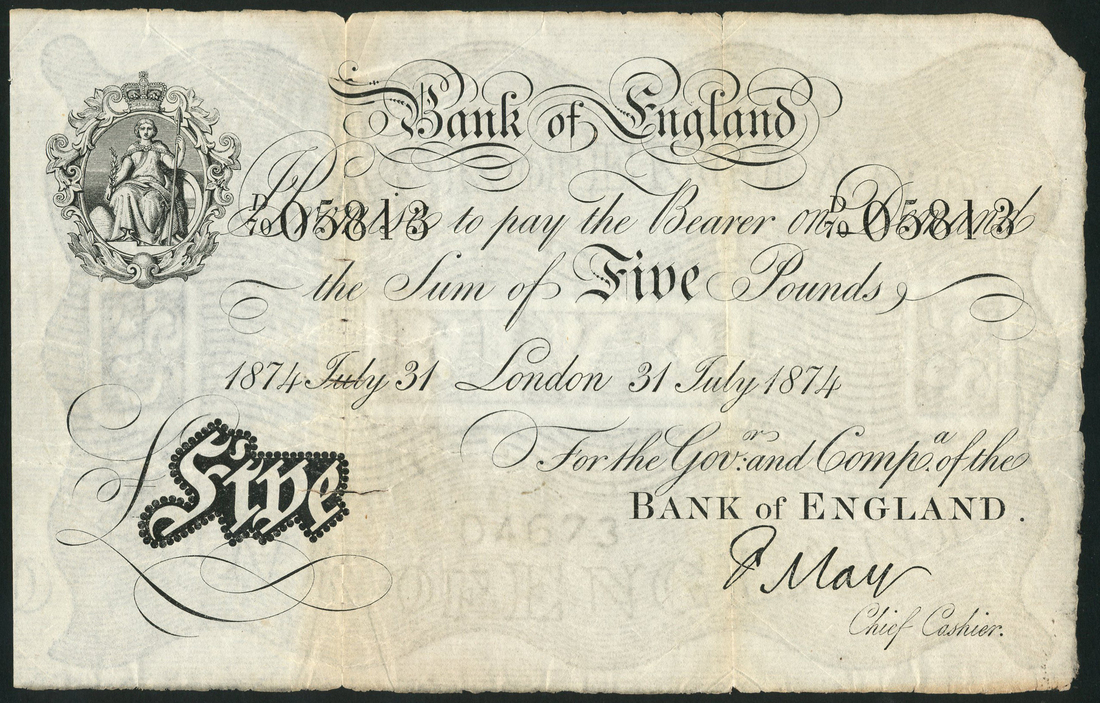 Bank of England
I Promise to pay the Bearer on Demand
D/70 05813 D/70 05813
the Sum of Five Pounds
1874 July 31 London 31 July 1874
For the Gov.r and Comp.a of the
BANK of ENGLAND.
£ Five
F May
Chief Cashier.
04673